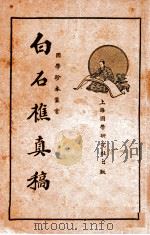 國學珍本叢書
白石樵真稿
上海國學研究社出版